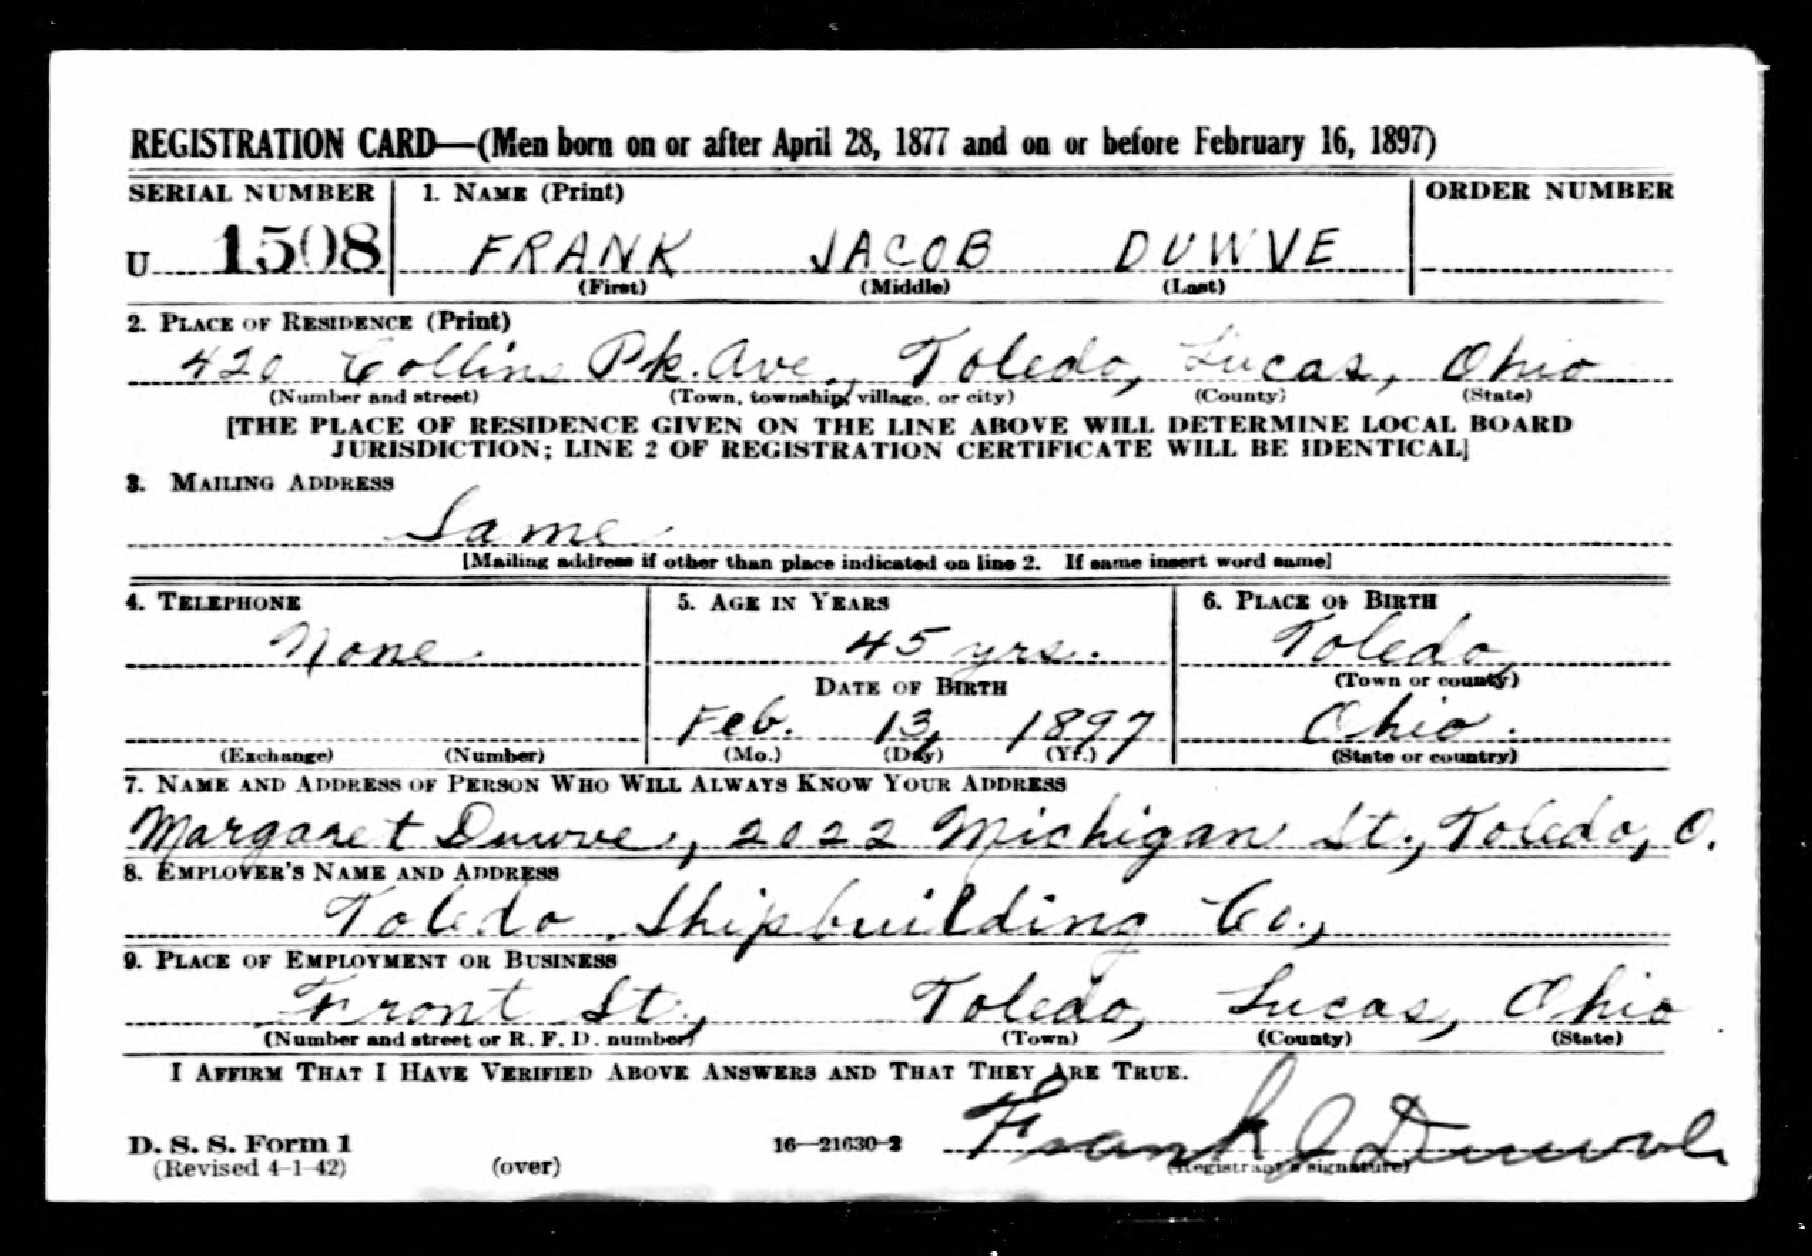 REGISTRATION CARD—(Men born on or after April 28, 1877 and on or before February 16, 1897)
SERIAL NUMBER 1. NAME (Print) ORDER NUMBER
U 1508 FRANK JACOB DUWVE
(First) (Middle) (Last)
2. PLACE OF RESIDENCE (Print)
420 Collins Pk. Ave., Toledo, Lucas, Ohio
(Number and street) (Town, township, village, or city) (County) (State)
[THE PLACE OF RESIDENCE GIVEN ON THE LINE ABOVE WILL DETERMINE LOCAL BOARD
JURISDICTION; LINE 2 OF REGISTRATION CERTIFICATE WILL BE IDENTICAL]
3. MAILING ADDRESS
Same
[Mailing address if other than place indicated on line 2. If same insert word same]
4. TELEPHONE 5. AGE IN YEARS 6. PLACE OF BIRTH
None. 45 yrs. Toledo,
DATE OF BIRTH (Town or county)
Feb. 13, 1897 Ohio.
(Exchange) (Number) (Mo.) (Day) (Yr.) (State or country)
7. NAME AND ADDRESS OF PERSON WHO WILL ALWAYS KNOW YOUR ADDRESS
Margaret Duwve, 2022 Michigan St., Toledo, O.
8. EMPLOYER'S NAME AND ADDRESS
Toledo Shipbuilding Co.,
9. PLACE OF EMPLOYMENT OR BUSINESS
Front St., Toledo, Lucas, Ohio
(Number and street or R. F. D. number) (Town) (County) (State)
I AFFIRM THAT I HAVE VERIFIED ABOVE ANSWERS AND THAT THEY ARE TRUE.
Frank J Duwve
D. S. S. Form 1 16—21630-2
(Revised 4-1-42) (over) (Registrant's signature)